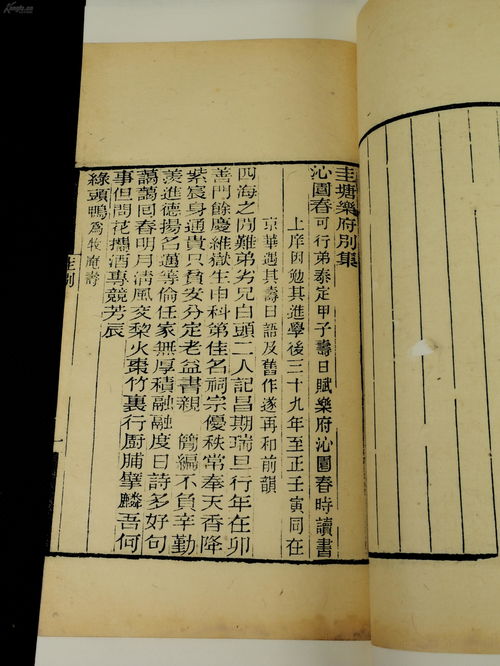 圭塘樂府別集
沁園春可行弟泰定甲子壽日賦樂府沁園春時讀書
上庠因勉其進學後三十九年至正壬寅同在
京華遇其壽日語及舊作遂再和前韻
四海之間難弟劣兄白頭二人記昌期瑞旦行年在卯
善門餘慶維嶽生申科第佳名祠宗優秩常奉天香降
紫宸身通貴只貧安分定老益書親 簡編不負辛勤
羨進德揚名邁等倫任家無厚積融融度日詩多好句
藹藹同春明月清風交梨火棗竹裏行廚脯擘麟吾何
事但問花攜酒專競芳辰
綠頭鴨爲牧庵壽
圭別
一